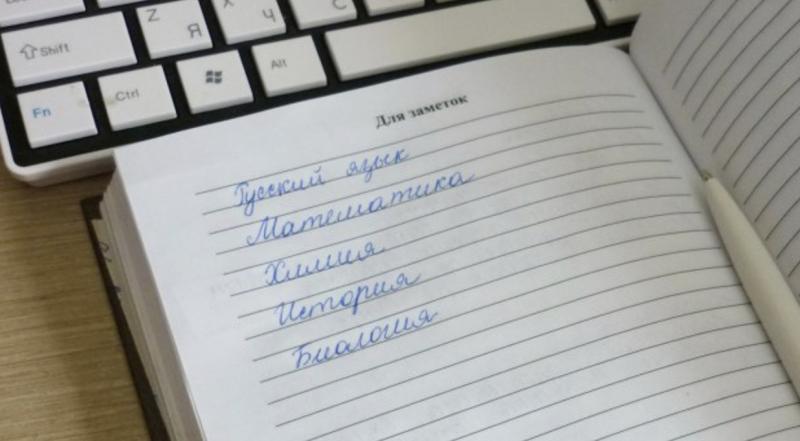 Shift
Z Я
X Ч
C С
Fn
Ctrl
Alt
Для заметок
Русский язык
Математика
Химия
История
Биология